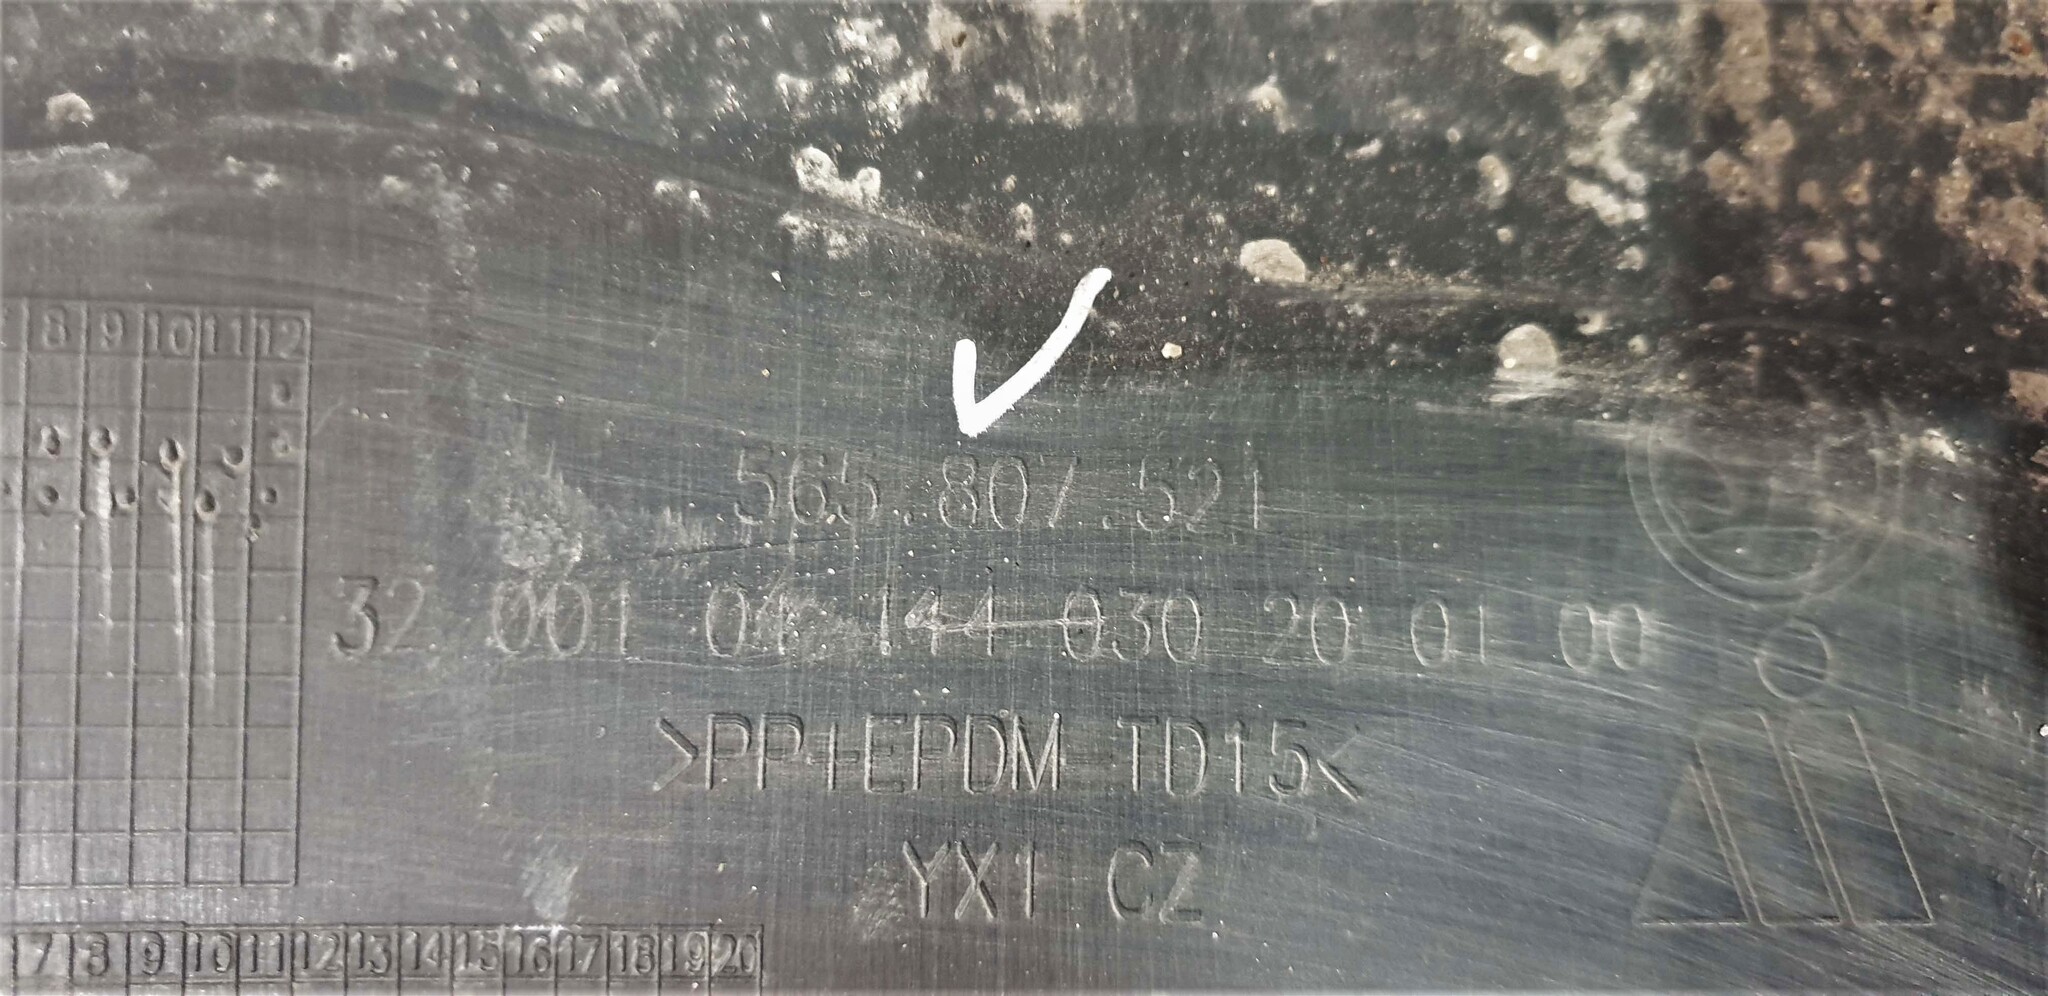 8 9 10 11 12
565.807.521
32 001 01 144 030 20 01 00
>PP+EPDM-TD15<
YX1 CZ
7 8 9 10 11 12 13 14 15 16 17 18 19 20